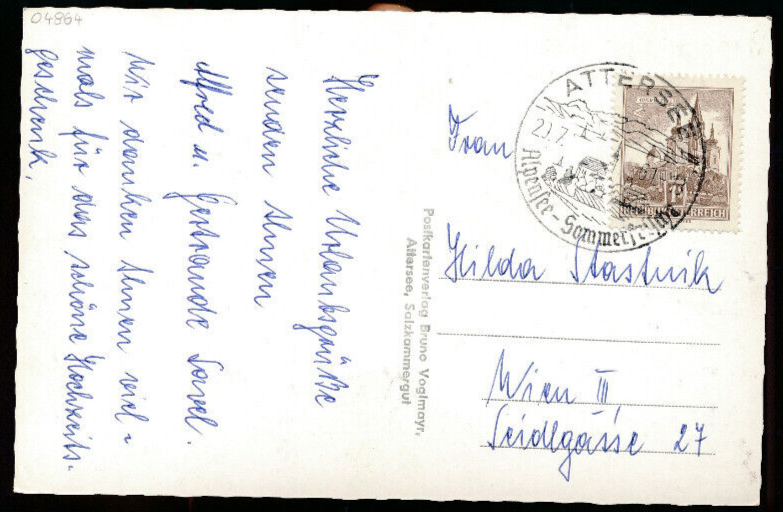 04964
Herzliche Urlaubsgrüße
senden Ihnen
Alfred u. Gertraude Savel.
Wir danken Ihnen viel-
mals für das schöne Hochzeits-
geschenk.
Postkartenverlag Bruno Voglmayr,
Attersee, Salzkammergut
ATTERSEE
Alpensee-Sommerfrische
Frau
Hilda Stastnik
Wien III,
Seidlgasse 27